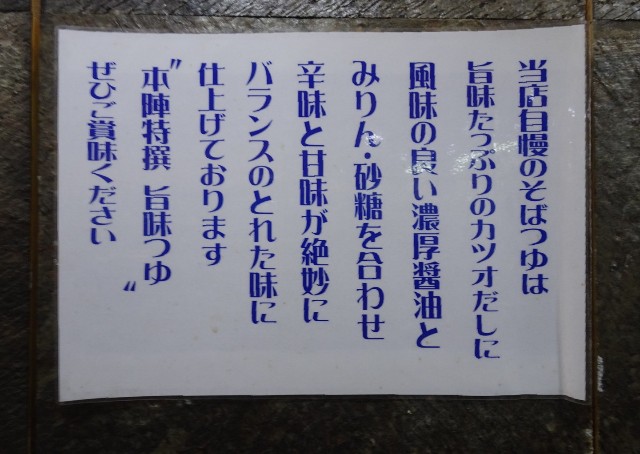 当店自慢のそばつゆは
旨味たっぷりのカツオだしに
風味の良い濃厚醤油と
みりん・砂糖を合わせ
辛味と甘味が絶妙に
バランスのとれた味に
仕上げております
〝本陣特撰 旨味つゆ〟
ぜひご賞味ください